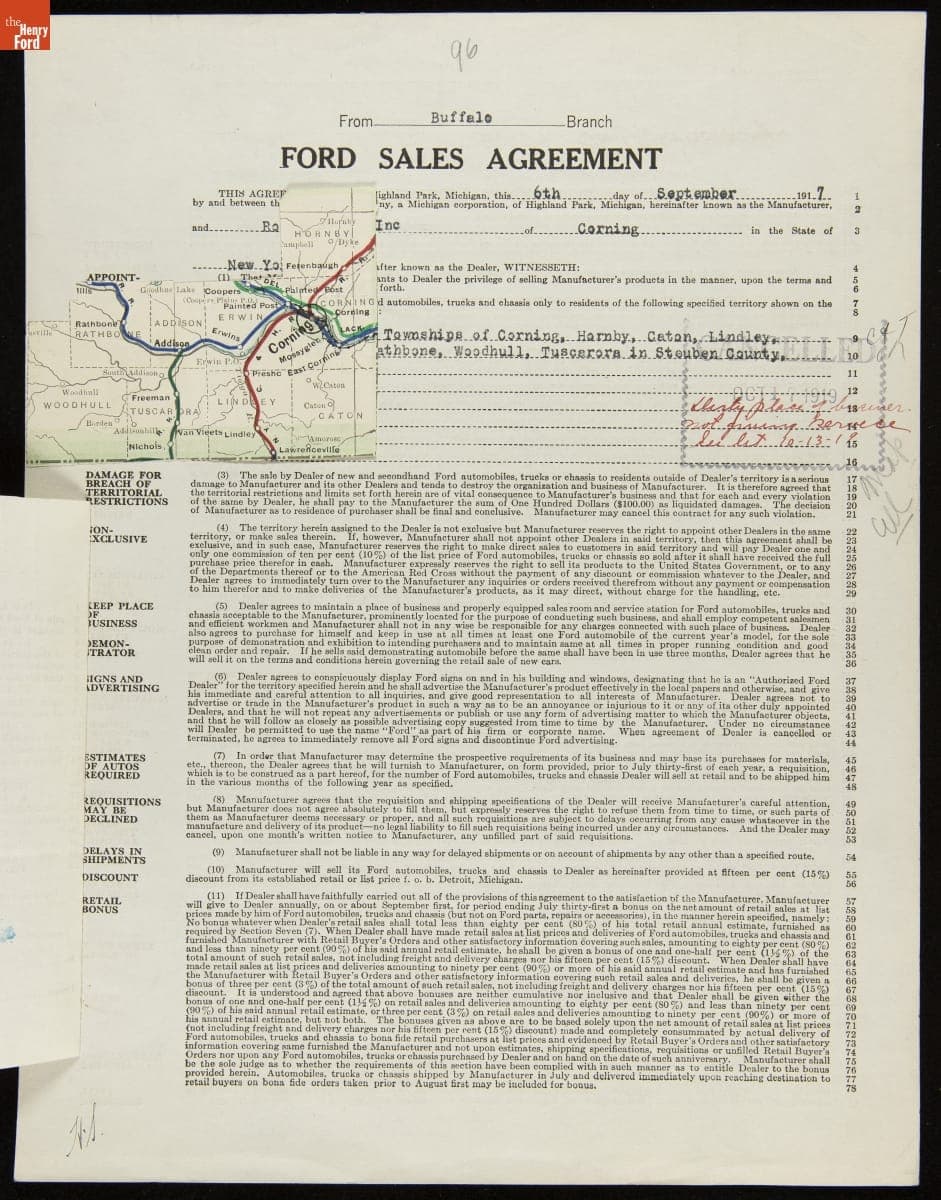 the
Henry
Ford
96
From Buffalo Branch
FORD SALES AGREEMENT
THIS AGRE ighland Park, Michigan, this 6th day of September 1917 1
by and between th ny, a Michigan corporation, of Highland Park, Michigan, hereinafter known as the Manufacturer, 2
and Ro Inc of Corning in the State of 3
New Yo after known as the Dealer, WITNESSETH: 4
APPOINT- (1) That ants to Dealer the privilege of selling Manufacturer's products in the manner, upon the terms and 5
forth. 6
d automobiles, trucks and chassis only to residents of the following specified territory shown on the 7
: 8
Townships of Corning, Hornby, Caton, Lindley, 9
athbone, Woodhull, Tuscarora in Steuben County, 10
11
12
13
14
15
16
Hornby
HORNBY
Campbell
Dyke
Ferenbaugh
Goodhue Lake
Coopers
(Coopers Plains P.O.)
Painted Post
Painted Post
CORNING
Corning
ERWIN
LACK.
Rathbone
RATHBONE
ADDISON
Addison
Erwins
Erwin P.O.
Corning
East Corning
South Addison
Presho
W. Caton
Woodhull
WOODHULL
Freeman
LINDLEY
Caton
CATON
TUSCARORA
Borden
Addisonhill
Van Vleets
Lindley
Nichols
Lawrenceville
OCT 1919
Dirty place of business
not giving service
DAMAGE FOR
BREACH OF
TERRITORIAL
RESTRICTIONS
(3) The sale by Dealer of new and secondhand Ford automobiles, trucks or chassis to residents outside of Dealer's territory is a serious 17
damage to Manufacturer and its other Dealers and tends to destroy the organization and business of Manufacturer. It is therefore agreed that 18
the territorial restrictions and limits set forth herein are of vital consequence to Manufacturer's business and that for each and every violation 19
of the same by Dealer, he shall pay to the Manufacturer the sum of One Hundred Dollars ($100.00) as liquidated damages. The decision 20
of Manufacturer as to residence of purchaser shall be final and conclusive. Manufacturer may cancel this contract for any such violation. 21
NON-
EXCLUSIVE
(4) The territory herein assigned to the Dealer is not exclusive but Manufacturer reserves the right to appoint other Dealers in the same 22
territory, or make sales therein. If, however, Manufacturer shall not appoint other Dealers in said territory, then this agreement shall be 23
exclusive, and in such case, Manufacturer reserves the right to make direct sales to customers in said territory and will pay Dealer one and 24
only one commission of ten per cent (10%) of the list price of Ford automobiles, trucks or chassis so sold after it shall have received the full 25
purchase price therefor in cash. Manufacturer expressly reserves the right to sell its products to the United States Government, or to any 26
of the Departments thereof or to the American Red Cross without the payment of any discount or commission whatever to the Dealer, and 27
Dealer agrees to immediately turn over to the Manufacturer any inquiries or orders received therefrom without any payment or compensation 28
to him therefor and to make deliveries of the Manufacturer's products, as it may direct, without charge for the handling, etc. 29
KEEP PLACE
OF
BUSINESS
DEMON-
STRATOR
(5) Dealer agrees to maintain a place of business and properly equipped sales room and service station for Ford automobiles, trucks and 30
chassis acceptable to the Manufacturer, prominently located for the purpose of conducting such business, and shall employ competent salesmen 31
and efficient workmen and Manufacturer shall not in any wise be responsible for any charges connected with such place of business. Dealer 32
also agrees to purchase for himself and keep in use at all times at least one Ford automobile of the current year's model, for the sole 33
purpose of demonstration and exhibition to intending purchasers and to maintain same at all times in proper running condition and good 34
clean order and repair. If he sells said demonstrating automobile before the same shall have been in use three months, Dealer agrees that he 35
will sell it on the terms and conditions herein governing the retail sale of new cars. 36
SIGNS AND
ADVERTISING
(6) Dealer agrees to conspicuously display Ford signs on and in his building and windows, designating that he is an "Authorized Ford 37
Dealer" for the territory specified herein and he shall advertise the Manufacturer's product effectively in the local papers and otherwise, and give 38
his immediate and careful attention to all inquiries, and give good representation to all interests of Manufacturer. Dealer agrees not to 39
advertise or trade in the Manufacturer's product in such a way as to be an annoyance or injurious to it or any of its other duly appointed 40
Dealers, and that he will not repeat any advertisements or publish or use any form of advertising matter to which the Manufacturer objects, 41
and that he will follow as closely as possible advertising copy suggested from time to time by the Manufacturer. Under no circumstance 42
will Dealer be permitted to use the name "Ford" as part of his firm or corporate name. When agreement of Dealer is cancelled or 43
terminated, he agrees to immediately remove all Ford signs and discontinue Ford advertising. 44
ESTIMATES
OF AUTOS
REQUIRED
(7) In order that Manufacturer may determine the prospective requirements of its business and may base its purchases for materials, 45
etc., thereon, the Dealer agrees that he will furnish to Manufacturer, on form provided, prior to July thirty-first of each year, a requisition, 46
which is to be construed as a part hereof, for the number of Ford automobiles, trucks and chassis Dealer will sell at retail and to be shipped him 47
in the various months of the following year as specified. 48
REQUISITIONS
MAY BE
DECLINED
(8) Manufacturer agrees that the requisition and shipping specifications of the Dealer will receive Manufacturer's careful attention, 49
but Manufacturer does not agree absolutely to fill them, but expressly reserves the right to refuse them from time to time, or such parts of 50
them as Manufacturer deems necessary or proper, and all such requisitions are subject to delays occurring from any cause whatsoever in the 51
manufacture and delivery of its product—no legal liability to fill such requisitions being incurred under any circumstances. And the Dealer may 52
cancel, upon one month's written notice to Manufacturer, any unfilled part of said requisitions. 53
DELAYS IN
SHIPMENTS
(9) Manufacturer shall not be liable in any way for delayed shipments or on account of shipments by any other than a specified route. 54
DISCOUNT
(10) Manufacturer will sell its Ford automobiles, trucks and chassis to Dealer as hereinafter provided at fifteen per cent (15%) 55
discount from its established retail or list price f. o. b. Detroit, Michigan. 56
RETAIL
BONUS
(11) If Dealer shall have faithfully carried out all of the provisions of this agreement to the satisfaction of the Manufacturer, Manufacturer 57
will give to Dealer annually, on or about September first, for period ending July thirty-first a bonus on the net amount of retail sales at list 58
prices made by him of Ford automobiles, trucks and chassis (but not on Ford parts, repairs or accessories), in the manner herein specified, namely: 59
No bonus whatever when Dealer's retail sales shall total less than eighty per cent (80%) of his total retail annual estimate, furnished as 60
required by Section Seven (7). When Dealer shall have made retail sales at list prices and deliveries of Ford automobiles, trucks and chassis and 61
furnished Manufacturer with Retail Buyer's Orders and other satisfactory information covering such sales, amounting to eighty per cent (80%) 62
and less than ninety per cent (90%) of his said annual retail estimate, he shall be given a bonus of one and one-half per cent (1½%) of the 63
total amount of such retail sales, not including freight and delivery charges nor his fifteen per cent (15%) discount. When Dealer shall have 64
made retail sales at list prices and deliveries amounting to ninety per cent (90%) or more of his said annual retail estimate and has furnished 65
the Manufacturer with Retail Buyer's Orders and other satisfactory information covering such retail sales and deliveries, he shall be given a 66
bonus of three per cent (3%) of the total amount of such retail sales, not including freight and delivery charges nor his fifteen per cent (15%) 67
discount. It is understood and agreed that above bonuses are neither cumulative nor inclusive and that Dealer shall be given either the 68
bonus of one and one-half per cent (1½%) on retail sales and deliveries amounting to eighty per cent (80%) and less than ninety per cent 69
(90%) of his said annual retail estimate, or three per cent (3%) on retail sales and deliveries amounting to ninety per cent (90%) or more of 70
his annual retail estimate, but not both. The bonuses given as above are to be based solely upon the net amount of retail sales at list prices 71
(not including freight and delivery charges nor his fifteen per cent (15%) discount) made and completely consummated by actual delivery of 72
Ford automobiles, trucks and chassis to bona fide retail purchasers at list prices and evidenced by Retail Buyer's Orders and other satisfactory 73
information covering same furnished the Manufacturer and not upon estimates, shipping specifications, requisitions or unfilled Retail Buyer's 74
Orders nor upon any Ford automobiles, trucks or chassis purchased by Dealer and on hand on the date of such anniversary. Manufacturer shall 75
be the sole judge as to whether the requirements of this section have been complied with in such manner as to entitle Dealer to the bonus 76
provided herein. Automobiles, trucks or chassis shipped by Manufacturer in July and delivered immediately upon reaching destination to 77
retail buyers on bona fide orders taken prior to August first may be included for bonus. 78